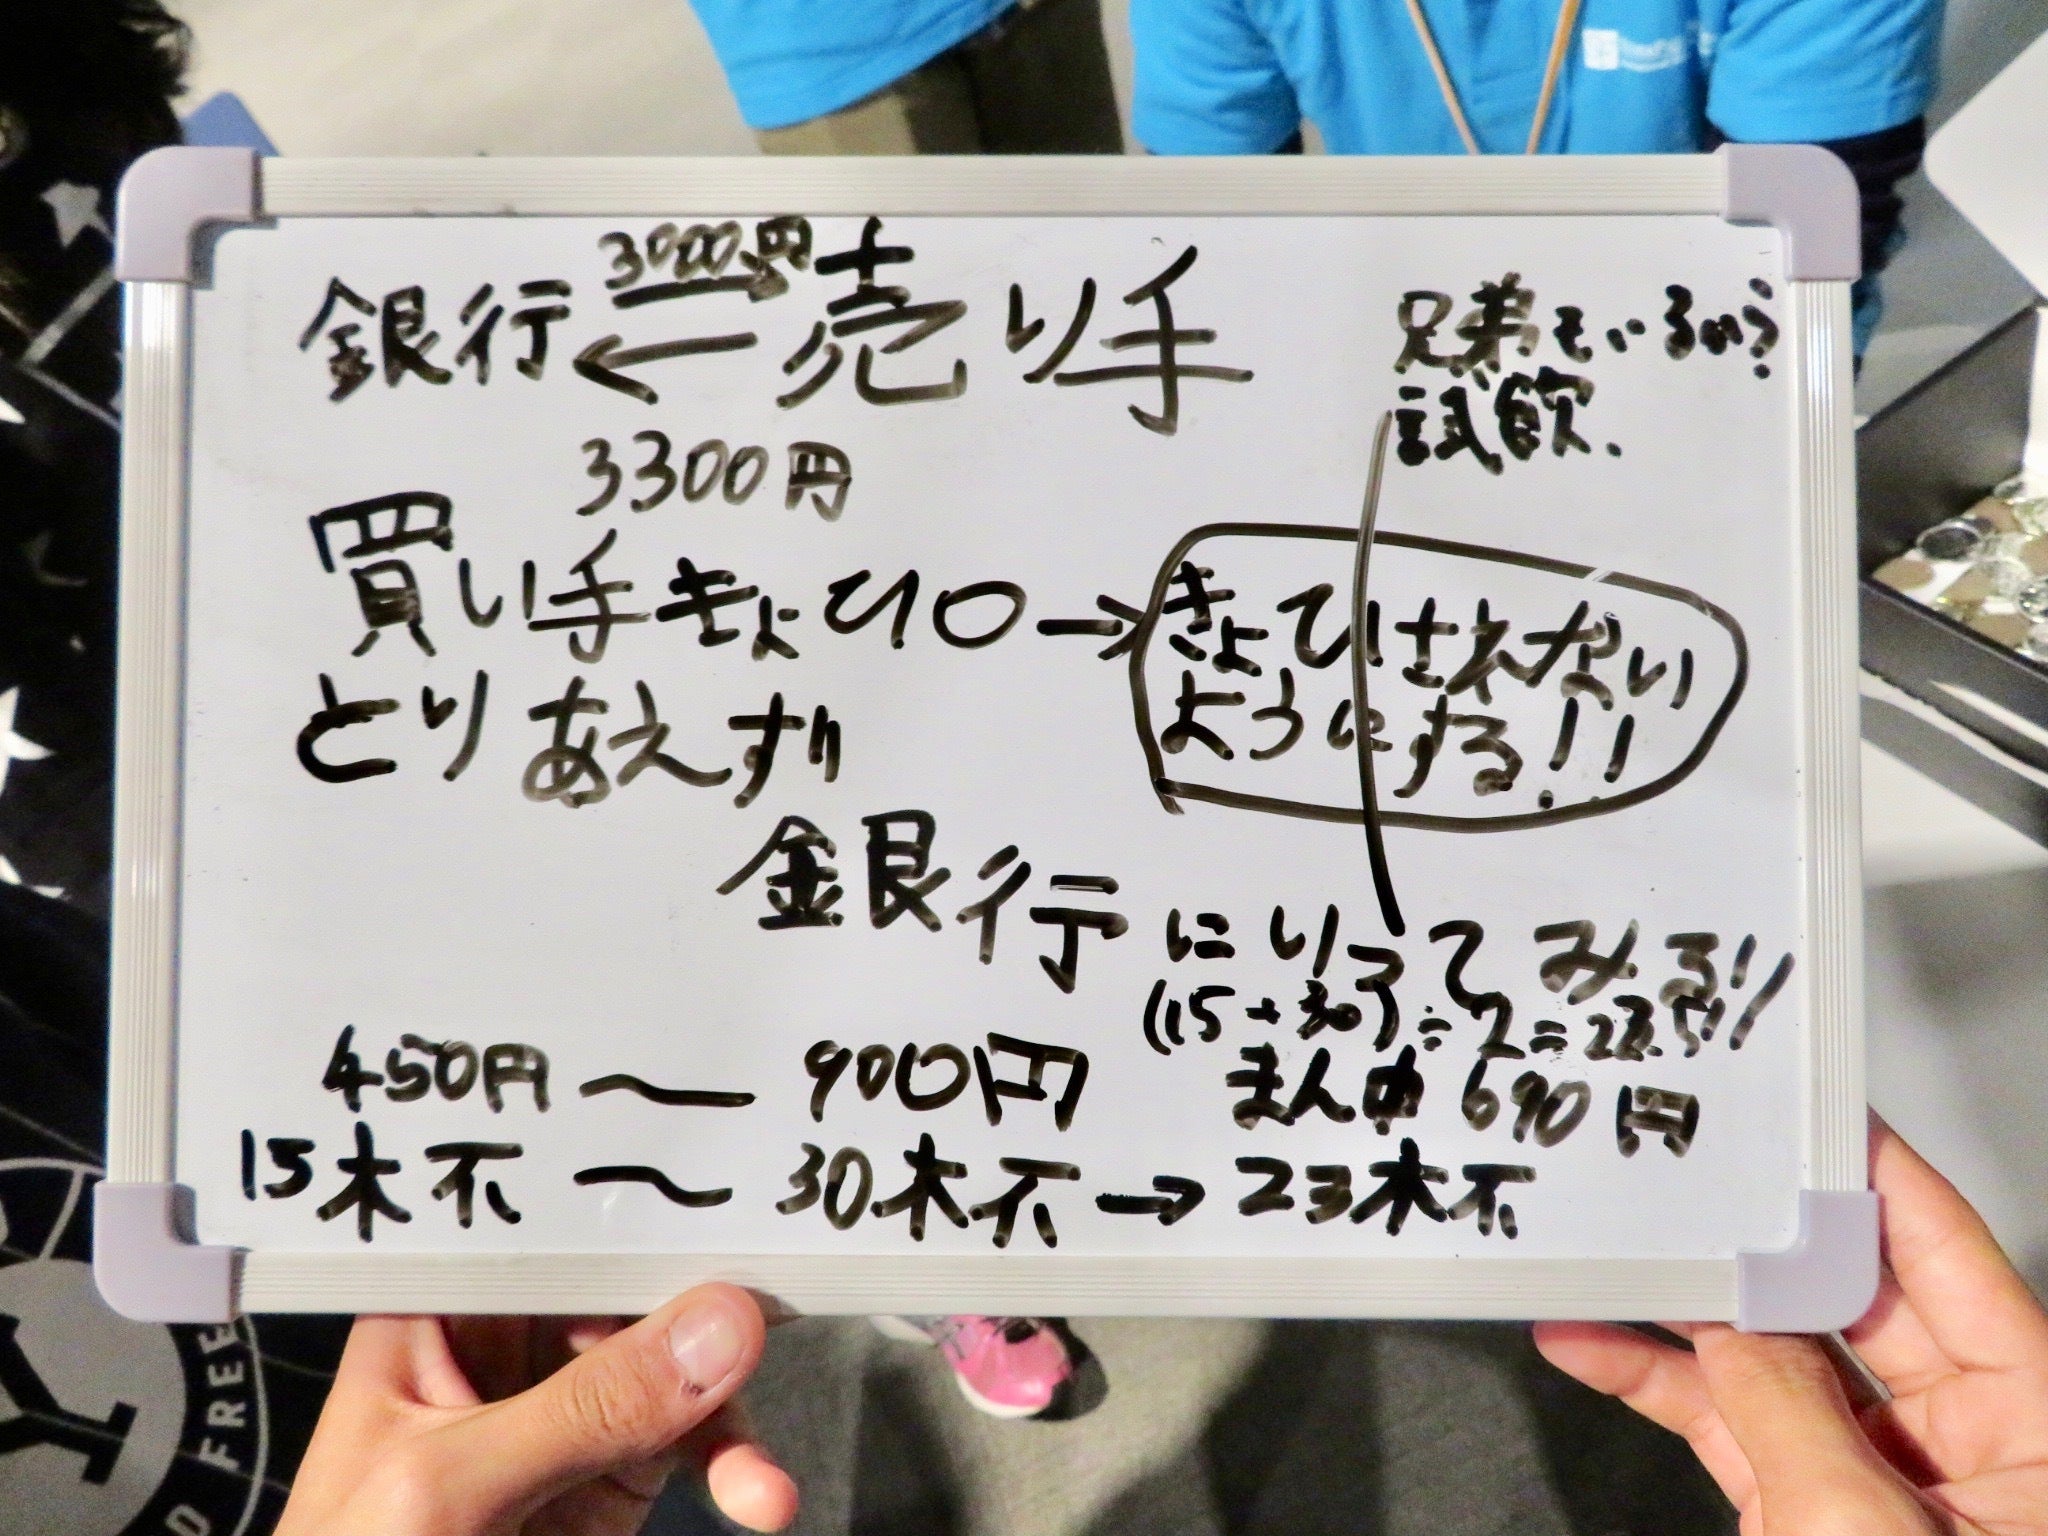 3000円
銀行 → ← 売り手
3300円
兄弟もいるから?
試飲.
買い手きょひ〇→きょひされない
ようにする!!
とりあえず
銀行にいってみる!!
(15+30)÷2=22.5
450円〜900円
まん中690円
15木不〜30木不→23木不
FREE